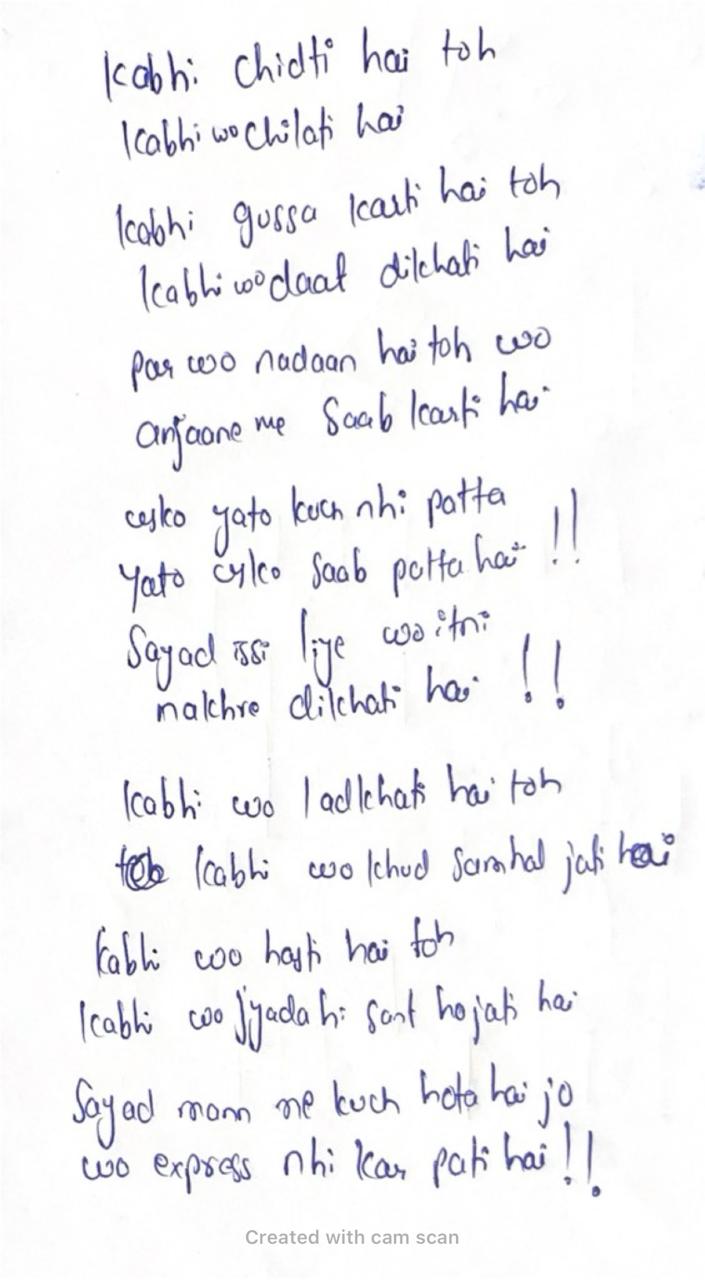 kabhi chidti hai toh
kabhi wo chilati hai
kabhi gussa karti hai toh
kabhi wo daat dikhati hai
par wo nadaan hai toh wo
anjaane me saab karti hai
usko yato kuch nhi patta
yato usko saab patta hai !!
Sayad issi liye wo itni
nakhre dikhati hai !!
kabhi wo ladkhati hai toh
kabhi wo khud samhal jati hai
kabhi wo hasti hai toh
kabhi wo jyada hi sant ho jati hai
Sayad mann me kuch hota hai jo
wo express nhi kar pati hai !!
Created with cam scan